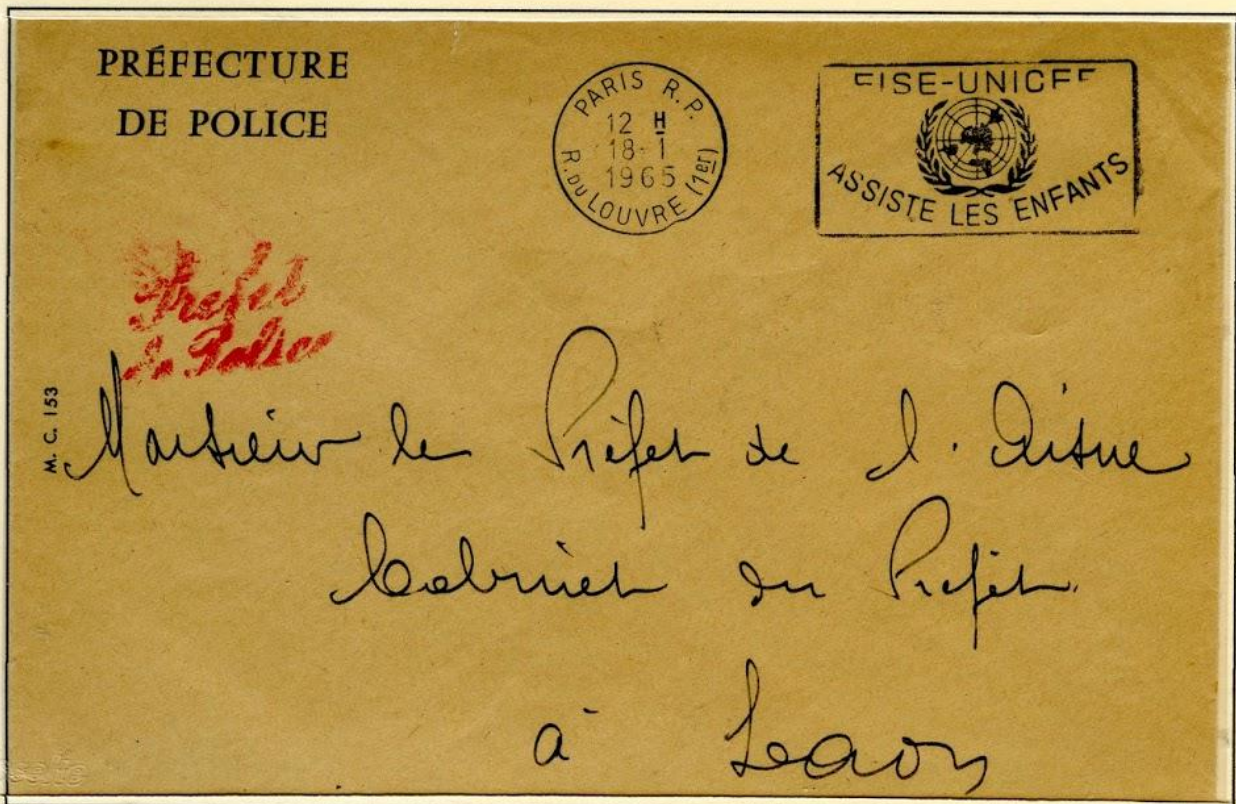 PRÉFECTURE
DE POLICE
PARIS R.P.
12 H
18-1
1965
R. DU LOUVRE (1er)
FISE-UNICEF
ASSISTE LES ENFANTS
Préfet
de Police
M. C. 153
Monsieur le Préfet de l'Aisne
Cabinet du Préfet
à Laon